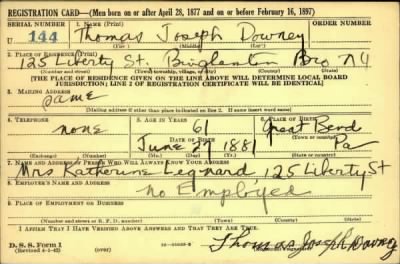 REGISTRATION CARD—(Men born on or after April 28, 1877 and on or before February 16, 1897)
SERIAL NUMBER 1. NAME (Print) ORDER NUMBER
U 144 Thomas Joseph Downey
(First) (Middle) (Last)
2. PLACE OF RESIDENCE (Print)
125 Liberty St. Binghamton Bro N Y
(Number and street) (Town, township, village, or city) (County) (State)
[THE PLACE OF RESIDENCE GIVEN ON THE LINE ABOVE WILL DETERMINE LOCAL BOARD
JURISDICTION; LINE 2 OF REGISTRATION CERTIFICATE WILL BE IDENTICAL]
3. MAILING ADDRESS
same
[Mailing address if other than place indicated on line 2. If same insert word same]
4. TELEPHONE 5. AGE IN YEARS 6. PLACE OF BIRTH
none 61 Great Bend
DATE OF BIRTH (Town or county)
June 27 1881 Pa
(Exchange) (Number) (Mo.) (Day) (Yr.) (State or country)
7. NAME AND ADDRESS OF PERSON WHO WILL ALWAYS KNOW YOUR ADDRESS
Mrs Katherine Leonard 125 Liberty St
8. EMPLOYER'S NAME AND ADDRESS
no Employed
9. PLACE OF EMPLOYMENT OR BUSINESS
(Number and street or R. F. D. number) (Town) (County) (State)
I AFFIRM THAT I HAVE VERIFIED ABOVE ANSWERS AND THAT THEY ARE TRUE.
D. S. S. Form 1
(Revised 4-1-42) (over) Thomas Joseph Downey